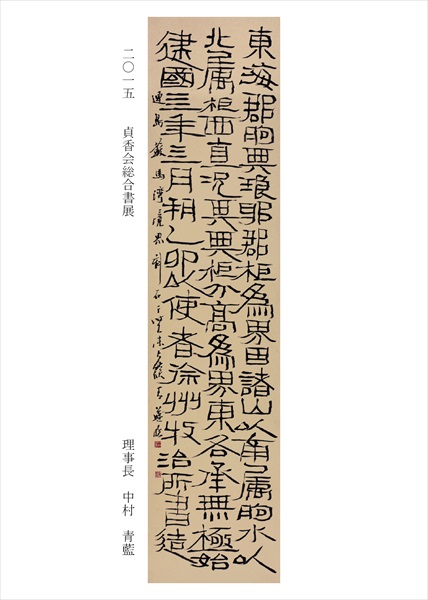 東海郡朐與琅邪郡柜爲界因諸山以南屬朐水以
北屬柜西直況其與柜分高爲界東各承無極始
建國亖年亖月朔乙卯以使者徐州牧治所書造
連島蘇馬湾境界刻石
二〇一五 貞香会総合書展
理事長 中村 青藍